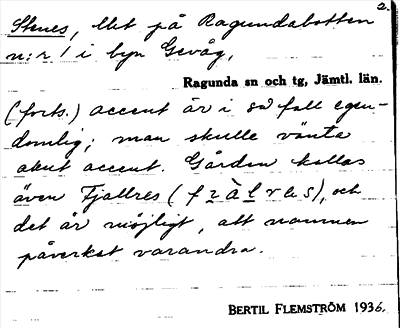 2.
Stenes, Utet på Ragundabotten
n:r 1 i byn Gevåg,
Ragunda sn och tg, Jämtl. län.
(forts.) accent är i så fall egen-
domlig; man skulle vänta
akut accent. Gården kallas
även Fjallres (fràlres), och
det är möjligt, att namnen
påverkat varandra.
BERTIL FLEMSTRÖM 1936.